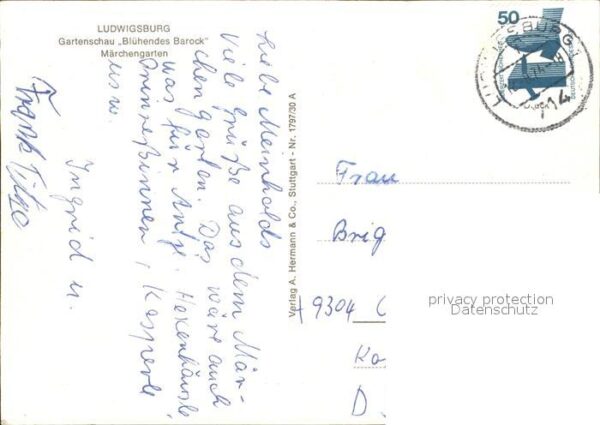 LUDWIGSBURG
Gartenschau „Blühendes Barock"
Märchengarten
Liebe Meinholds
Viele Grüße aus dem Mär-
chengarten. Das wäre auch
was für Antje. Hexenhäusle
Prinzessinnen, Kasperle
usw.
Ingrid u.
Frank
Verlag A. Hermann & Co., Stuttgart - Nr. 1797/30 A
50
LUDWIGSBURG 1
714
Frau
Brig
9304 C
Ka
D.
privacy protection
Datenschutz